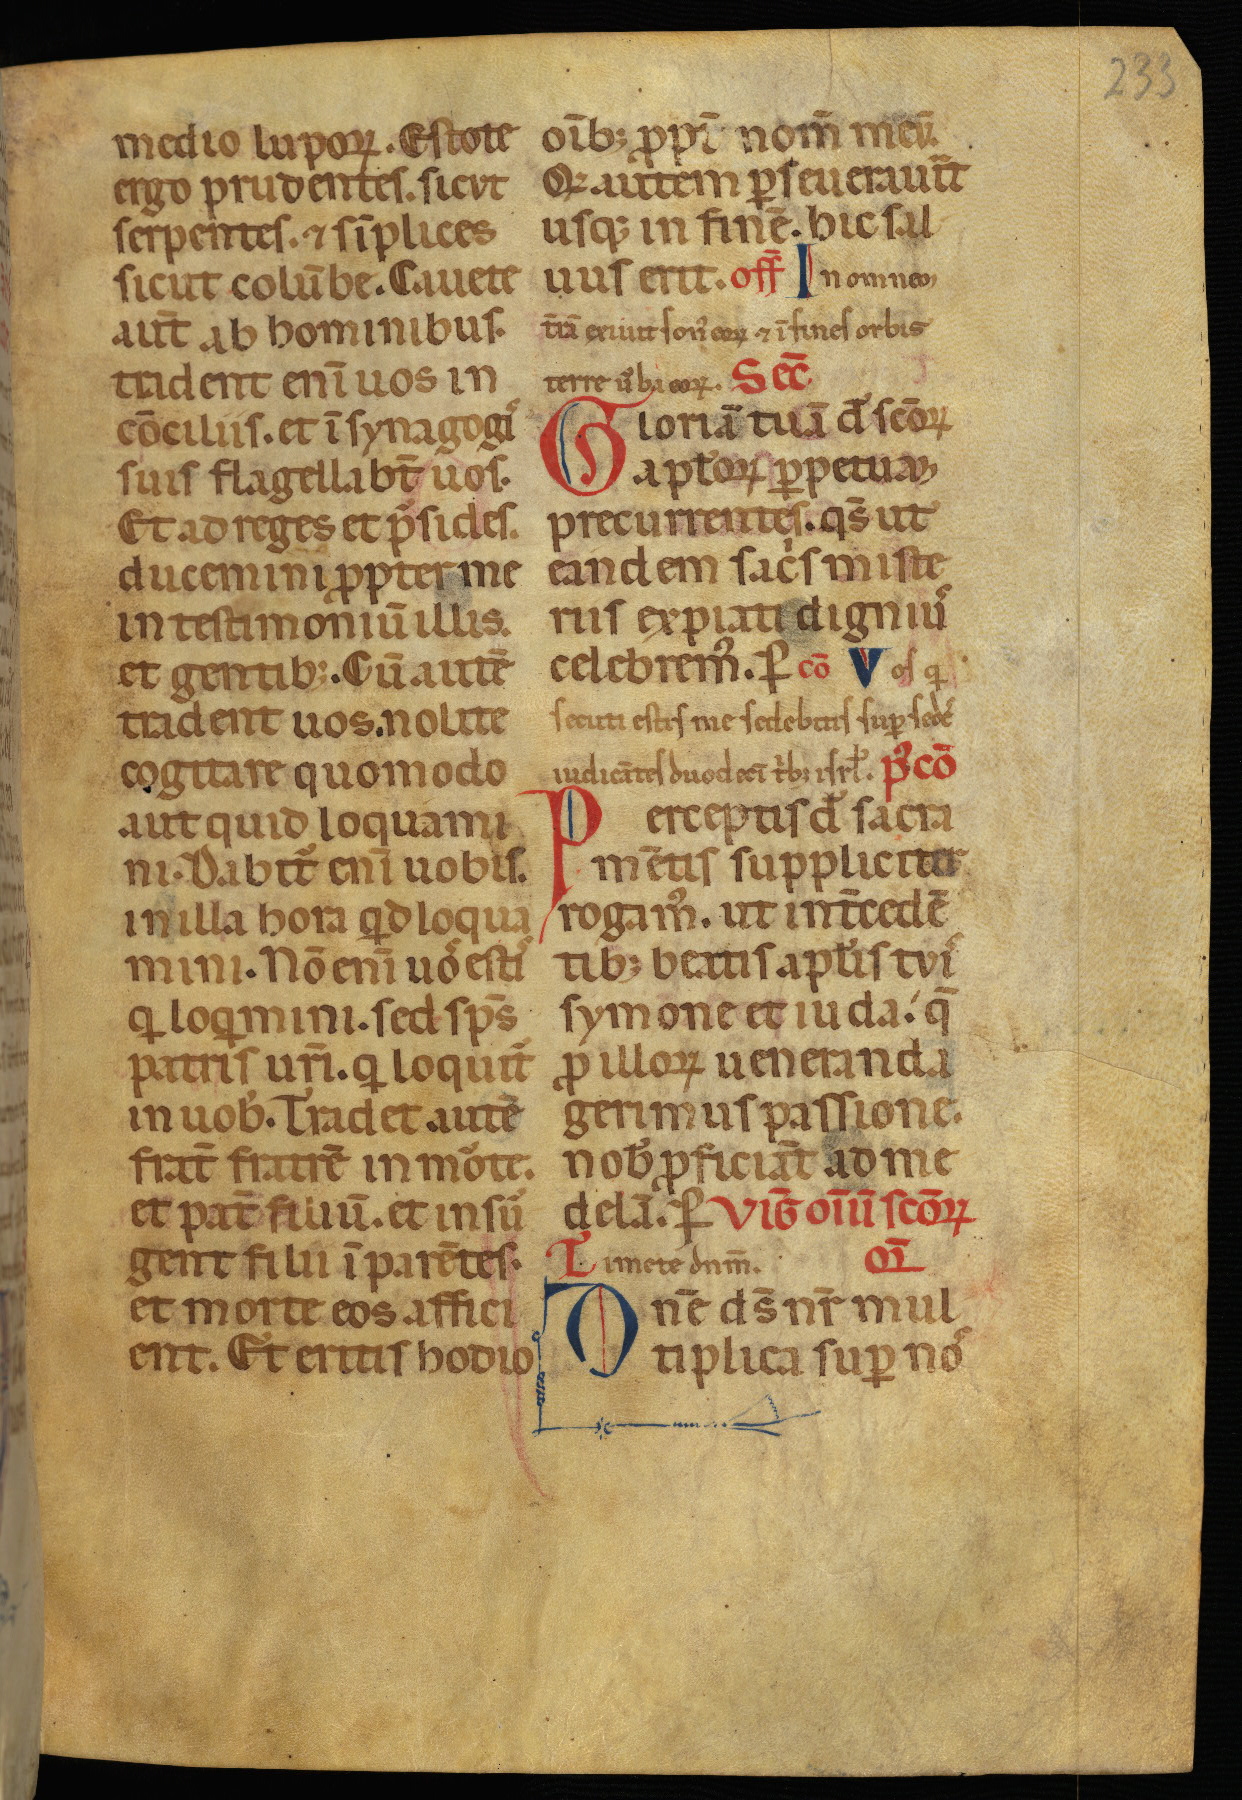 233
medio lupoꝝ. Estote
ergo prudentes. sicvt
serpentes. ⁊ sīplices
sicut colūbe. Cauete
aut̄ ab hominibus.
trident enī uos in
cōciliis. et ī synagogiˢ
suis flagellabt̄ uos.
Et ad reges et p̄sides.
ducemini ꝓpter me
in testimoniū illis.
et gentibꝫ. Cū autē
trident uos. nolite
cogitare quomodo
aut quid loquami
ni. Dabit᷑ enī uobis.
in illa hora qd loqua
mini. Nō enī uoˢ estiˢ
q loqmini. sed sp̄s
patris ur̄i. q loquit᷑
in uob᷒. Tradet autē
frat̄ fratrē in moᷓte.
et pat̄ filiū. et insu᷑
gent filii ī parētes.
et morte eos affici
ent. Et eritis hodio
oībꝫ ꝓpt̄ nom̄ meū.
Qͥ autem ꝑseuerauit᷑
usqꝫ in finē. hic sal
uus erit. off̄ In omnem
t̄rā exiuit sonꝰ eoꝝ ⁊ ī fines orbis
terre u᷑ba eoꝝ. Sec̄
Gloriā tuā d̄ scōꝝ
apl̄oꝝ ꝑpetuam
precurrentes. qs̄ ut
eandem sac᷑s miste
riis expiati digniuˢ
celebremꝰ. ꝑ cō Vos q
secuti estis me sedebitis suꝑ sedeˢ
iudicātes duodecī t̓bꝫ isrl̄. pꝰcō
Perceptis d̄ sacra
mētis suppliciter
rogamꝰ. ut int̄cedē
tibꝫ beatis apl̄is tviˢ
symone et iuda. q̄
ꝓ illoꝝ ueneranda
gerimus passione.
nob᷒ ꝓficiāt ad me
delā. ꝑ Viḡ oīū scōꝝ
Timete dnm̄. or̄
Omn̄e ds̄ nr̄ mul
tiplica suꝑ noˢ